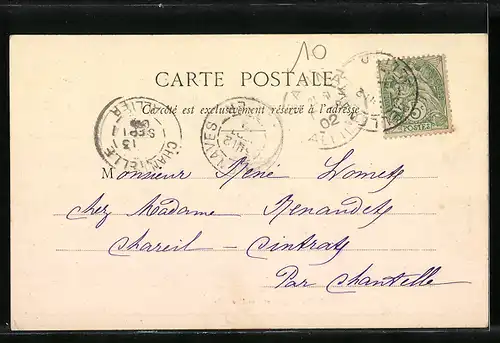 10
CARTE POSTALE
Ce côté est exclusivement réservé à l'adresse
CHANTELLE
13
SEPT
ALLIER
02
POSTES
Monsieur René
chez Madame Renaudet
Chareil - Cintrat
Par Chantelle